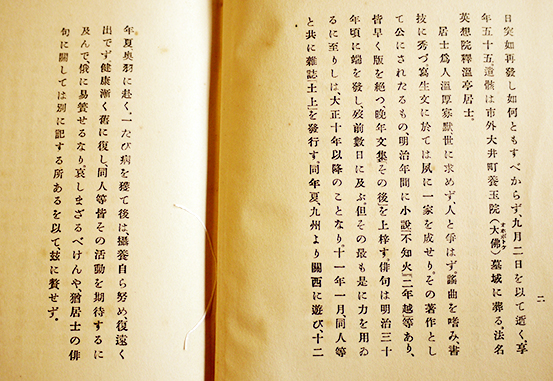 二
日突如再發し如何ともすべからず、九月二日を以て逝く、享
年五十五、遺骸は市外大井町養玉院(大佛)墓域に葬る、法名
英想院釋溫亭居士。
居士爲人溫厚寡默世に求めず、人と爭はず謠曲を嗜み、書
技に秀づ、寫生文に於ては夙に一家を成せり。その著作とし
て公にされたるもの、明治年間に小說「不知火」「二年越」等あり、
皆早く版を絕つ、晩年文集「その後」を上梓す。俳句は明治三十
年頃に端を發し、歿前數日に及ぶ、但その最も是に力を用ゐ
るに至りしは、大正十年以降のことなり。十一年一月、同人等
と共に雜誌「土上」を發行す、同年夏、九州より關西に遊び、十二
年、夏奧羽に赴く、一たび病を獲て後は、攝養自ら努め、復遠く
出でず、健康漸く舊に復し、同人等皆その活動を期待するに
及んで、俄に易簀せるなり。哀しまざるべけんや、猶居士の俳
句に關しては別に記する所あるを以て、玆に贅せず。